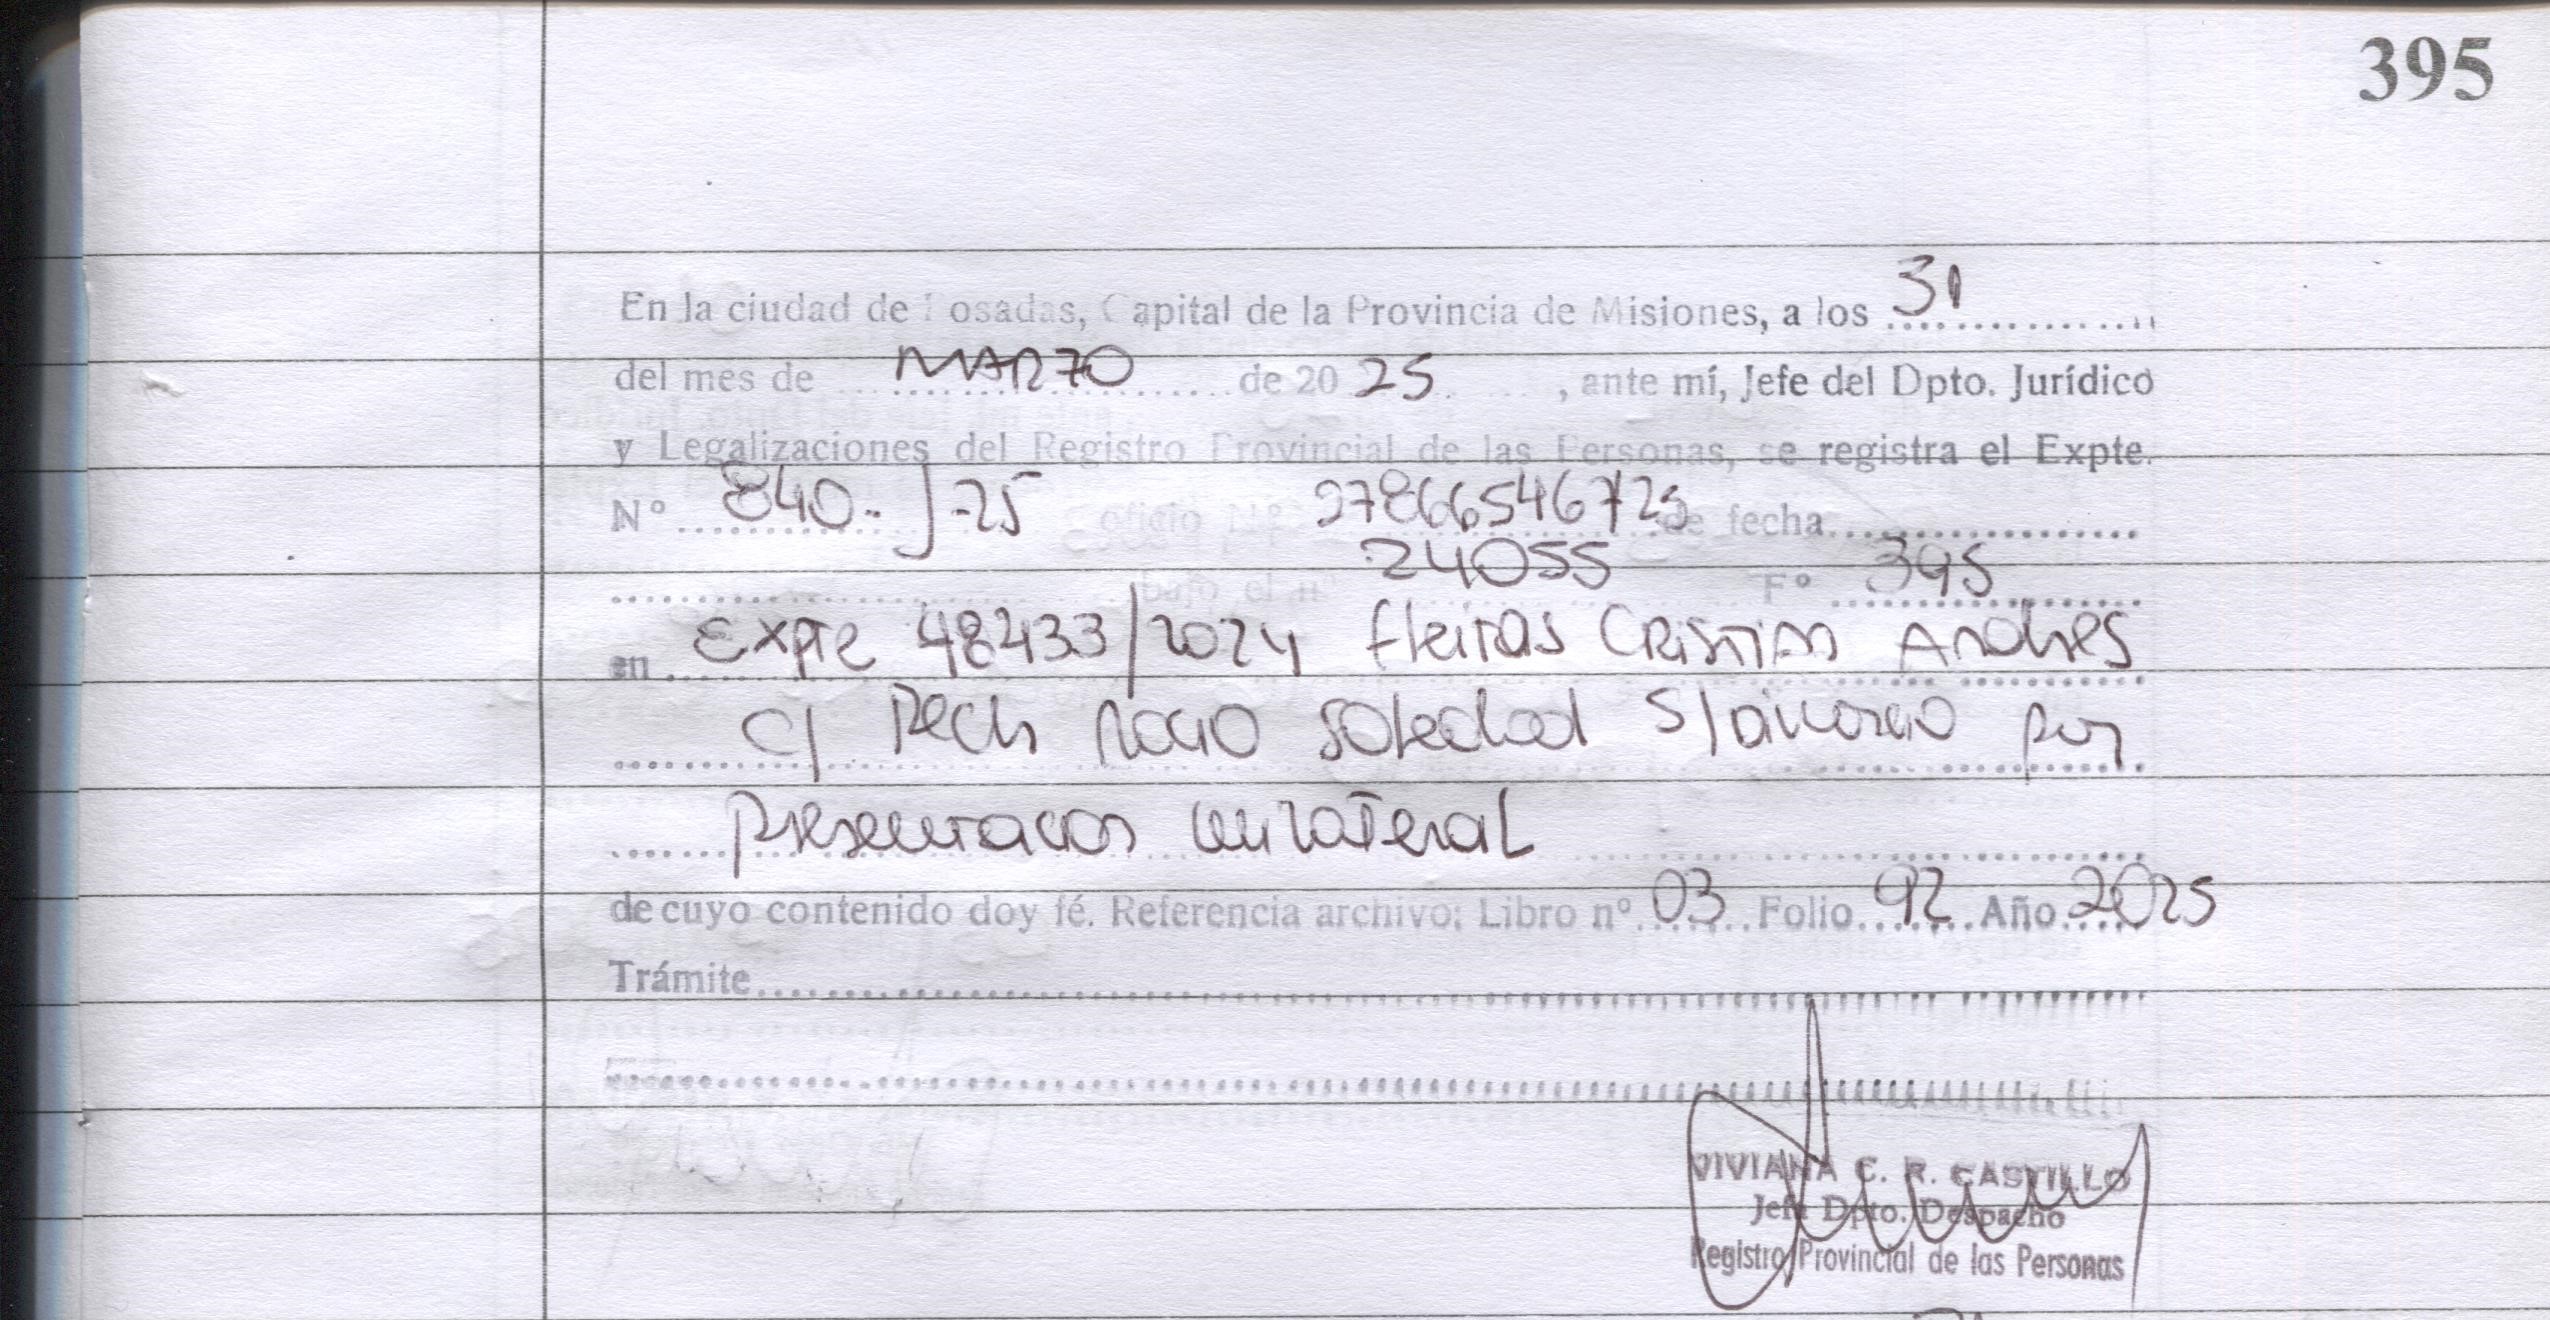 395
En la ciudad de Posadas, Capital de la Provincia de Misiones, a los 31
del mes de MARZO de 20 25 , ante mí, Jefe del Dpto. Jurídico
y Legalizaciones del Registro Provincial de las Personas, se registra el Expte.
Nº 840-J-25 oficio Nº 278665467/25 de fecha
bajo el nº 24055 Fº 395
en Expte 48433/2024 Fleitas Cristian Andres
c/ Pech Rocio Soledad S/divorcio por
presentacion unilateral
de cuyo contenido doy fé. Referencia archivo: Libro nº 03 Folio 92 Año 2025
Trámite
VIVIANA C. R. CASTILLO
Jefe Dpto. Despacho
Registro Provincial de las Personas